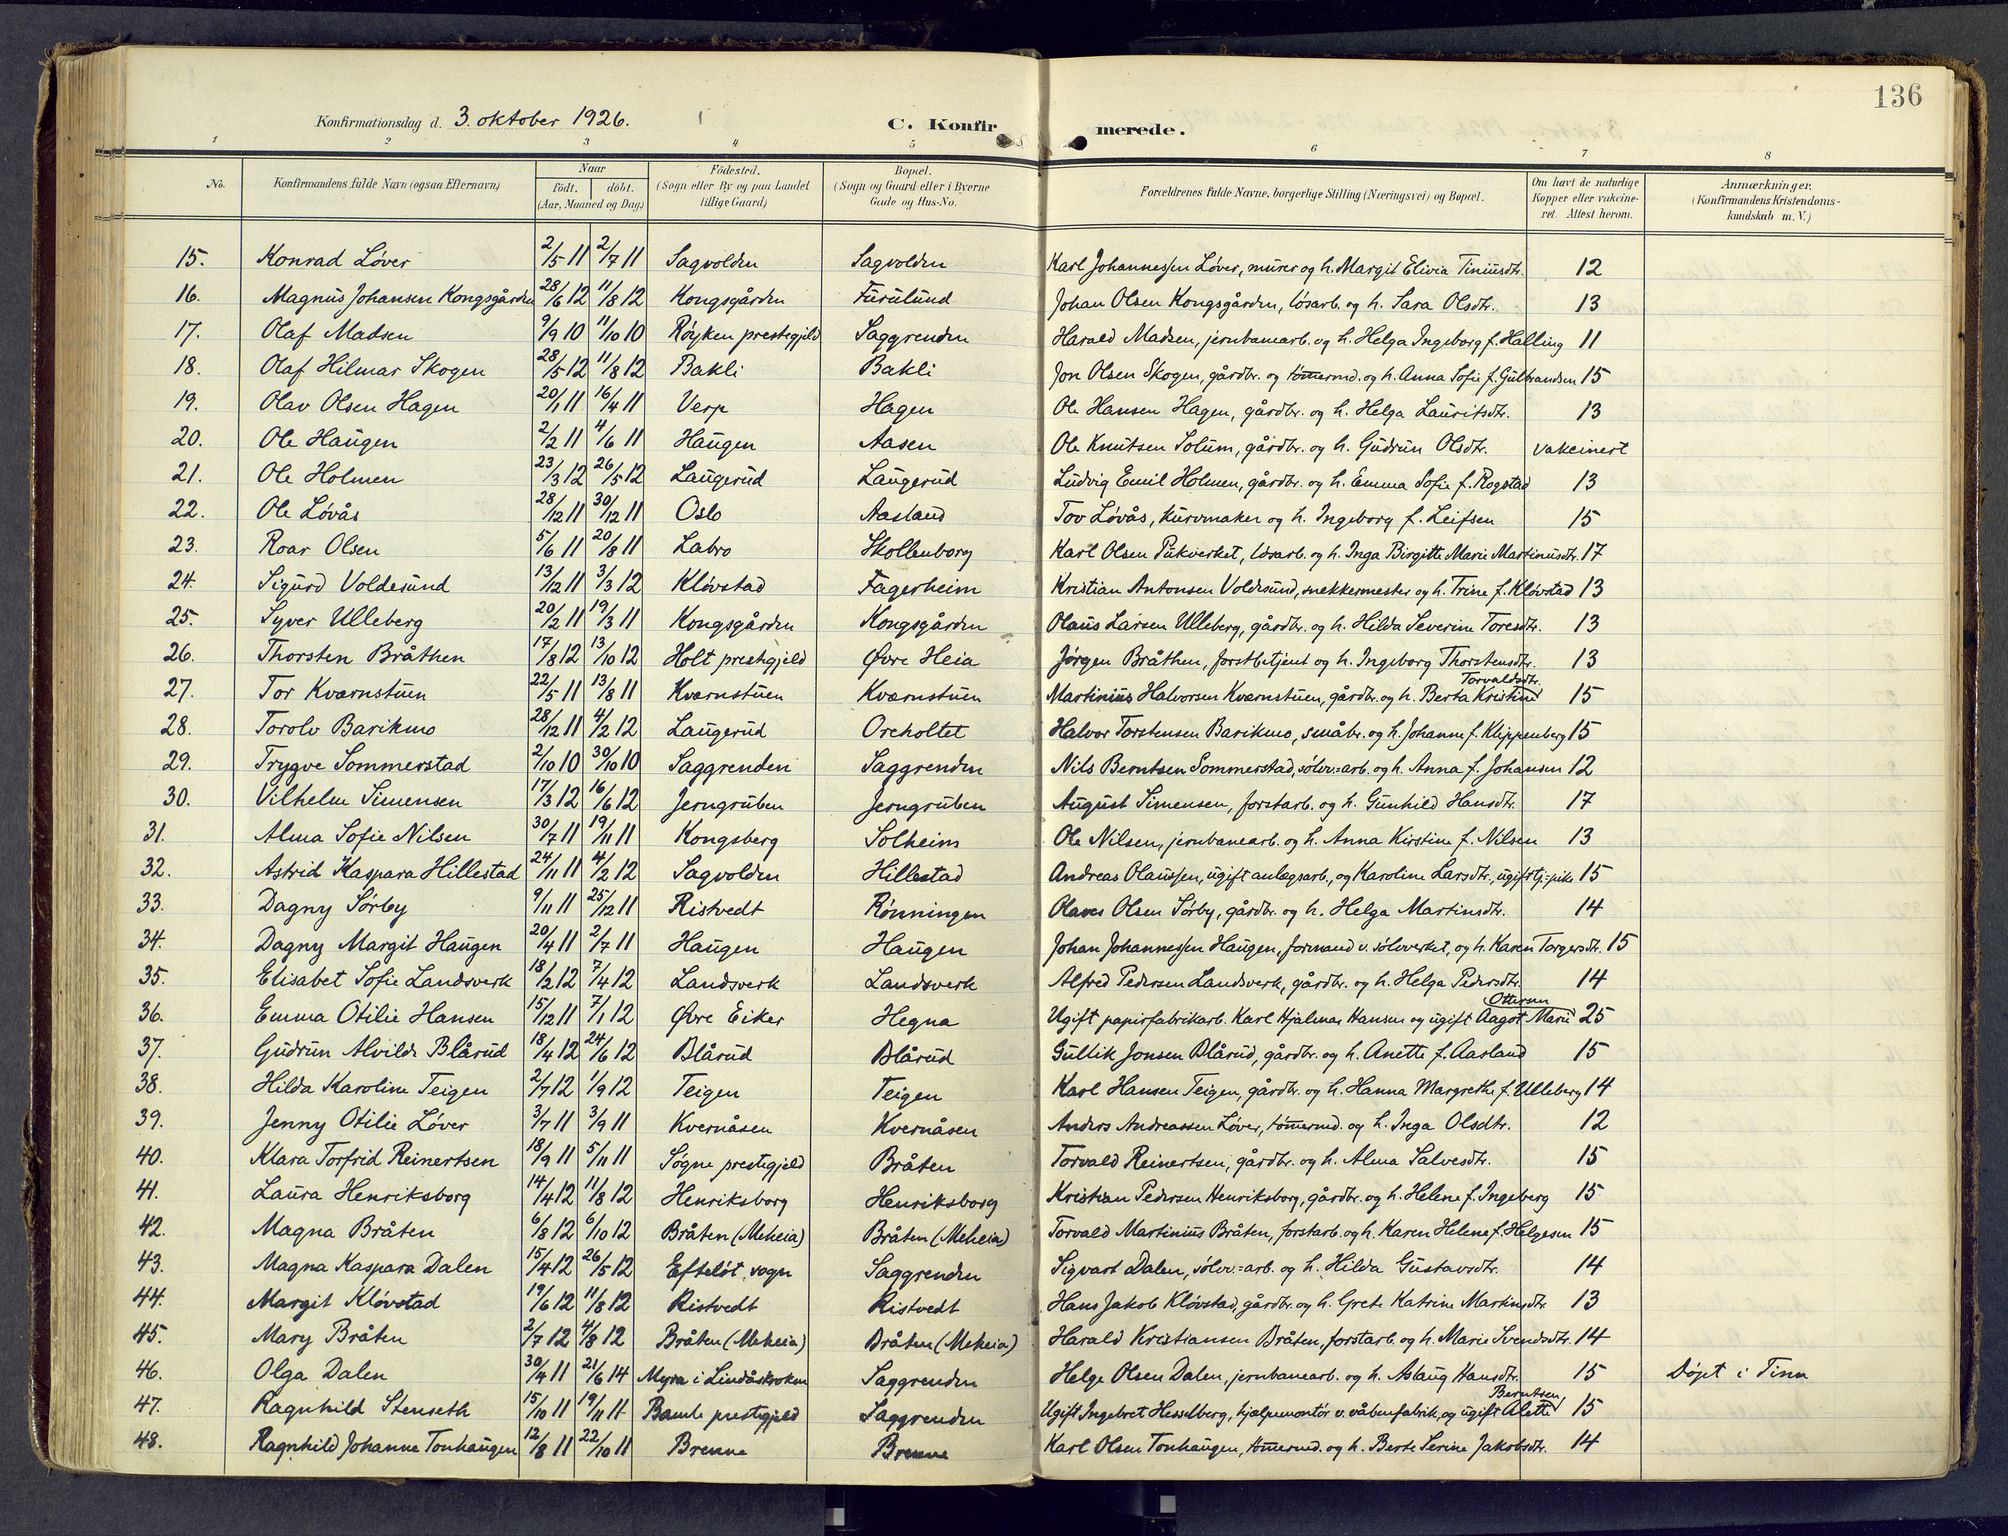 136
Konfirmationsdag d. 3. oktober 1926. C. Konfirmerede.
1 2 3 4 5 6 7 8
No. Konfirmandens fulde Navn (ogsaa Efternavn) Naar födt. döbt. (Aar, Maaned og Dag) Födested. (Sogn eller By og paa Landet tillige Gaard) Bopæl. (Sogn og Gaard eller i Byerne Gade og Hus-No. Forældrenes fulde Navne, borgerlige Stilling (Næringsvei) og Bopæl. Om havt de naturlige Kopper eller vakcineret. Attest herom. Anmærkninger. (Konfirmandens Kristendomskundskab m. V.)
15. Konrad Løver 2/5 11 2/7 11 Sagvolden Sagvolden Karl Johannessen Løver, murer og h. Margit Elivia Tiniusdtr. 12
16. Magnus Johansen Kongsgården 28/6 12 11/8 12 Kongsgården Furulund Johan Olsen Kongsgården, løsarb. og h. Sara Olsdtr. 13
17. Olaf Madsen 9/9 10 11/10 10 Røyken prestegjeld Saggrenden Harald Madsen, jernbanearb. og h. Helga Ingeborg f. Halling 11
18. Olaf Hilmar Skogen 28/5 12 11/8 12 Bakli Bakli Jon Olsen Skogen, gårdbr. og tømermd. og h. Anna Sofie f. Gulbrandsen 15
19. Olav Olsen Hagen 20/1 11 16/4 11 Verp Hagen Ole Hansen Hagen, gårdbr. og h. Helga Lauritsdtr. 13
20. Ole Haugen 2/2 11 4/6 11 Haugen Aasen Ole Knutsen Solum, gårdbr. og h. Gudrun Olsdtr. vakcinert
21. Ole Holmen 23/3 12 26/5 12 Laugerud Laugerud Ludvig Emil Holmen, gårdbr. og h. Emma Sofie f. Rogstad 13
22. Ole Løvås 28/12 11 30/12 11 Oslo Aasland Tov Løvås, kurvmaker og h. Ingeborg f. Leifsen 15
23. Roar Olsen 5/6 11 20/8 11 Labro Skollenborg Karl Olsen Pukverket, løsarb. og h. Inga Birgitte Marie Martinusdtr. 17
24. Sigurd Voldesund 13/12 11 3/3 12 Kløvstad Fagerheim Kristian Antonsen Voldesund, snekkermester og h. Trine f. Kløvstad 13
25. Syver Ulleberg 20/2 11 19/3 11 Kongsgården Kongsgården Olaus Larsen Ulleberg, gårdbr. og h. Hilda Severine Toresdtr. 13
26. Thorsten Bråthen 17/8 12 13/10 12 Holt prestegjeld Øvre Heia Jørgen Bråthen, forstbetjent og h. Ingeborg Thorstensdtr. 13
27. Tor Kværnstuen 22/5 11 13/8 11 Kværnstuen Kværnstuen Martinius Halvorsen Kværnstuen, gårdbr. og h. Berta Kristine Torvaldsdtr. 15
28. Torolv Barikmo 28/12 11 4/2 12 Laugerud Oreholtet Halvor Torstensen Barikmo, småbr. og h. Johanne f. Klippenberg 15
29. Trygve Sommerstad 2/10 10 30/10 10 Saggrenden Saggrenden Nils Berntsen Sommerstad, sølvv.=arb. og h. Anna f. Johansen 12
30. Vilhelm Simensen 17/3 12 16/6 12 Jerngruben Jerngruben August Simensen, forstarb. og h. Gunhild Hansdtr. 17
31. Alma Sofie Nilsen 30/7 11 19/11 11 Kongsberg Solheim Ole Nilsen, jernbanearb. og h. Anna Kirstine f. Nilsen 13
32. Astrid Kaspara Hillestad 24/11 11 4/2 12 Sagvolden Hillestad Andreas Olaussen, ugift anlægsarb., og Karoline Larsdtr., ugift tj.=pike 15
33. Dagny Sørby 9/11 11 25/12 11 Ristvedt Rønningen Olaves Olsen Sørby, gårdbr. og h. Helga Martinsdtr. 14
34. Dagny Margit Haugen 20/4 11 2/7 11 Haugen Haugen Johan Johannessen Haugen, formand v. sølvverket, og h. Karen Torgersdtr. 15
35. Elisabet Sofie Landsverk 18/2 12 7/4 12 Landsverk Landsverk Alfred Pedersen Landsverk, gårdbr. og h. Helga Pedersdtr. 14
36. Emma Otilie Hansen 15/12 11 7/1 12 Øvre Eiker Hegna Ugift papirfabrikarb. Karl Hjalmar Hansen og ugift Aagot Marie Ottersen 25
37. Gudrun Alvilde Blårud 18/4 12 24/6 12 Blårud Blårud Gullik Jonsen Blårud, gårdbr. og h. Anette f. Aasland 15
38. Hilda Karoline Teigen 2/7 12 1/9 12 Teigen Teigen Karl Hansen Teigen, gårdbr. og h. Hanna Margrethe f. Ulleberg 14
39. Jenny Otilie Løver 3/7 11 3/9 11 Kvernåsen Kvernåsen Anders Andreassen Løver, tømermd. og h. Inga Olsdtr. 12
40. Klara Torfrid Reinertsen 18/9 11 5/11 11 Søgne prestegjeld Bråten Torvald Reinertsen, gårdbr. og h. Alma Salvesdtr. 15
41. Laura Henriksborg 14/4 12 11/8 12 Henriksborg Henriksborg Kristian Pedersen Henriksborg, gårdbr. og h. Helene f. Ingeberg 15
42. Magna Bråten 6/8 12 6/10 12 Bråten (Meheia) Bråten (Meheia) Torvald Martinius Bråten, forstarb. og h. Karen Helene f. Helgesen 15
43. Magna Kaspara Dalen 15/4 12 26/5 12 Efteløt sogn Saggrenden Sigvart Dalen, sølvv.=arb. og h. Hilda Gustavsdtr. 14
44. Margit Kløvstad 19/6 12 11/8 12 Ristvedt Ristvedt Hans Jakob Kløvstad, gårdbr. og h. Grete Katrine Martinsdtr. 13
45. Mary Bråten 2/7 12 4/8 12 Bråten (Meheia) Bråten (Meheia) Harald Kristiansen Bråten, forstarb. og h. Marie Svendsdtr. 14
46. Olga Dalen 30/4 11 21/6 14 Myra i Lindåskroken Saggrenden Helge Olsen Dalen, jernbanearb. og h. Aslaug Hansdtr. 15 Døpt i Tinn
47. Ragnhild Stenseth 15/10 11 19/11 11 Bamle prestegjeld Saggrenden Ugift Ingebret Hesselberg, hjælpemontør v. våbenfabrik, og ugift Alette Berntsen 15
48. Ragnhild Johanne Tonhaugen 12/8 11 22/10 11 Brenne Brenne Karl Olsen Tonhaugen, tømermd. og h. Berte Serine Jakobsdtr. 14